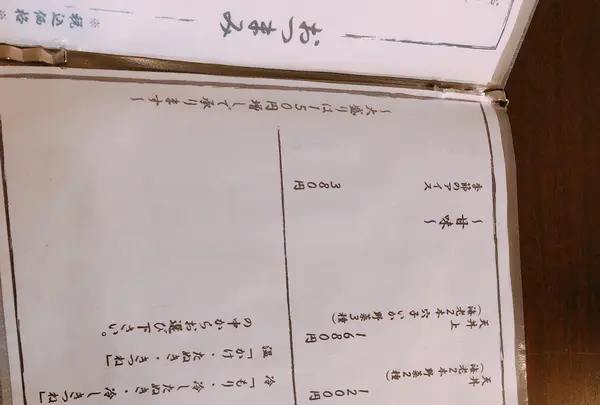 天丼
(海老2本野菜2種)
1200円
天丼上
(海老2本穴子いか野菜3種)
1680円
〜甘味〜
季節のアイス
380円
冷「もり・冷したぬき・冷しきつね」
温「かけ・たぬき・きつね」
の中からお選び下さい。
〜大盛りは150円増しで承ります〜
おつまみ
※税込価格